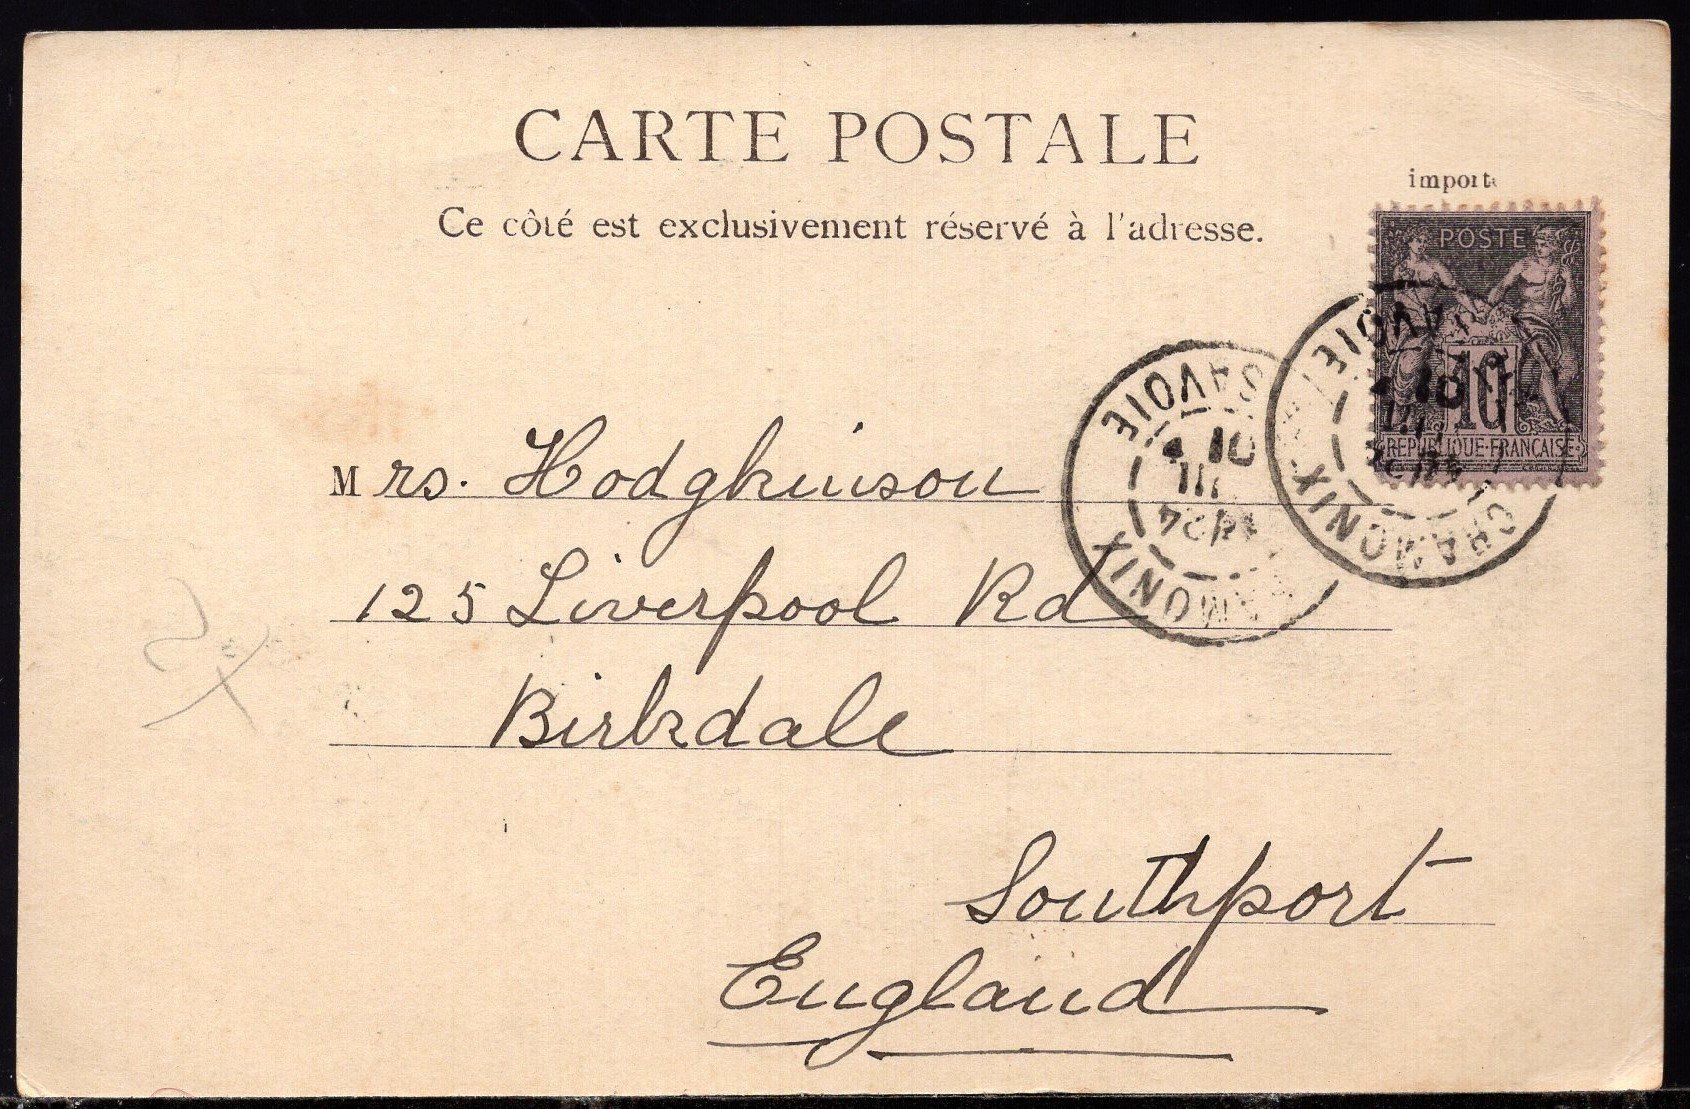 CARTE POSTALE
importe
Ce côté est exclusivement réservé à l'adresse.
POSTE
10
REPUBLIQUE FRANCAISE
Mrs. Hodgkinson
125 Liverpool Rd
Birkdale
Southport
England
CHAMONIX
SAVOIE
SAVOIE
10